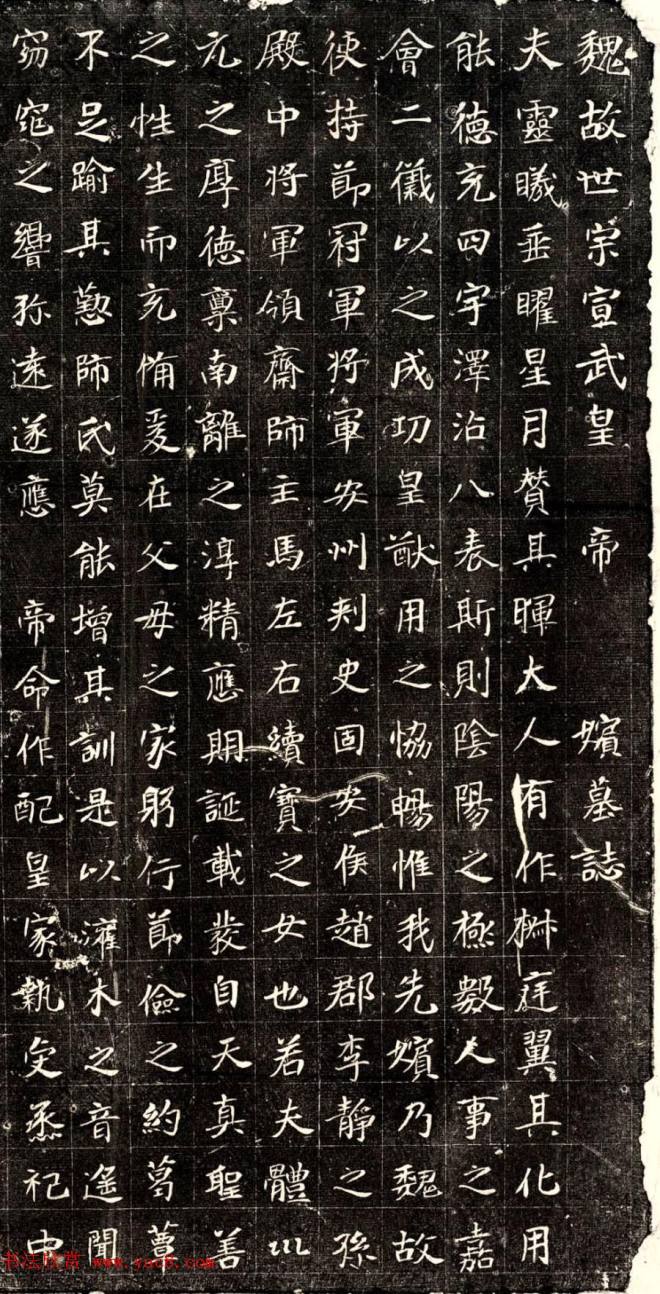 魏故世宗宣武皇 帝 嬪墓誌
夫靈曦垂曜星月贊其暉大人有作椒庭翼其化用
能德充四宇澤沾八表斯則陰陽之極數人事之嘉
會二儀以之成功皇猷用之恊暢惟我先嬪乃魏故
使持節冠軍將軍安州刾史固安侯趙郡李靜之孫
殿中將軍領齋師主馬左右續寶之女也若夫體巛
元之厚德稟南離之淳精應期誕載發自天真聖善
之性生而充備爰在父母之家躬行節儉之約葛蕈
不足踰其懃師氏莫能增其訓是以灌木之音遥聞
窈窕之響弥遠遂應 帝命作配皇家執烝祀中
书法欣赏 www.yac8.com